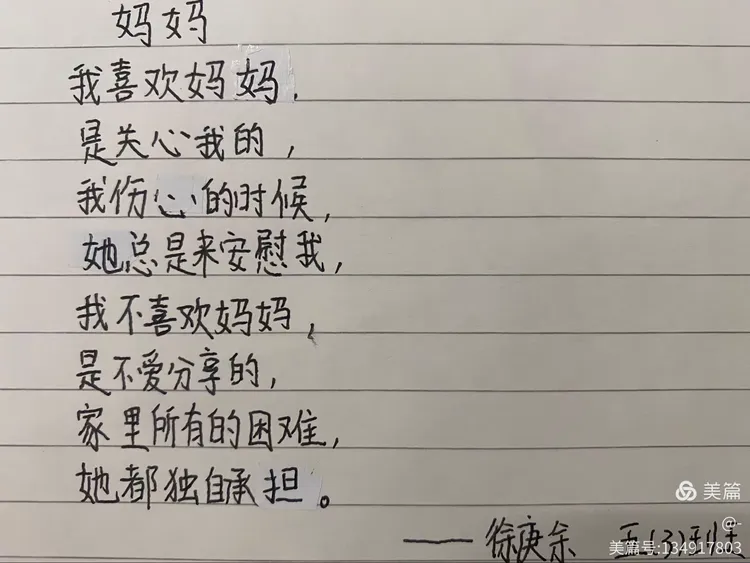 妈妈
我喜欢妈妈，
是关心我的，
我伤心的时候，
她总是来安慰我，
我不喜欢妈妈，
是不爱分享的，
家里所有的困难，
她都独自承担。
——徐庚余 五(3)
美篇
@-
美篇号:134917803